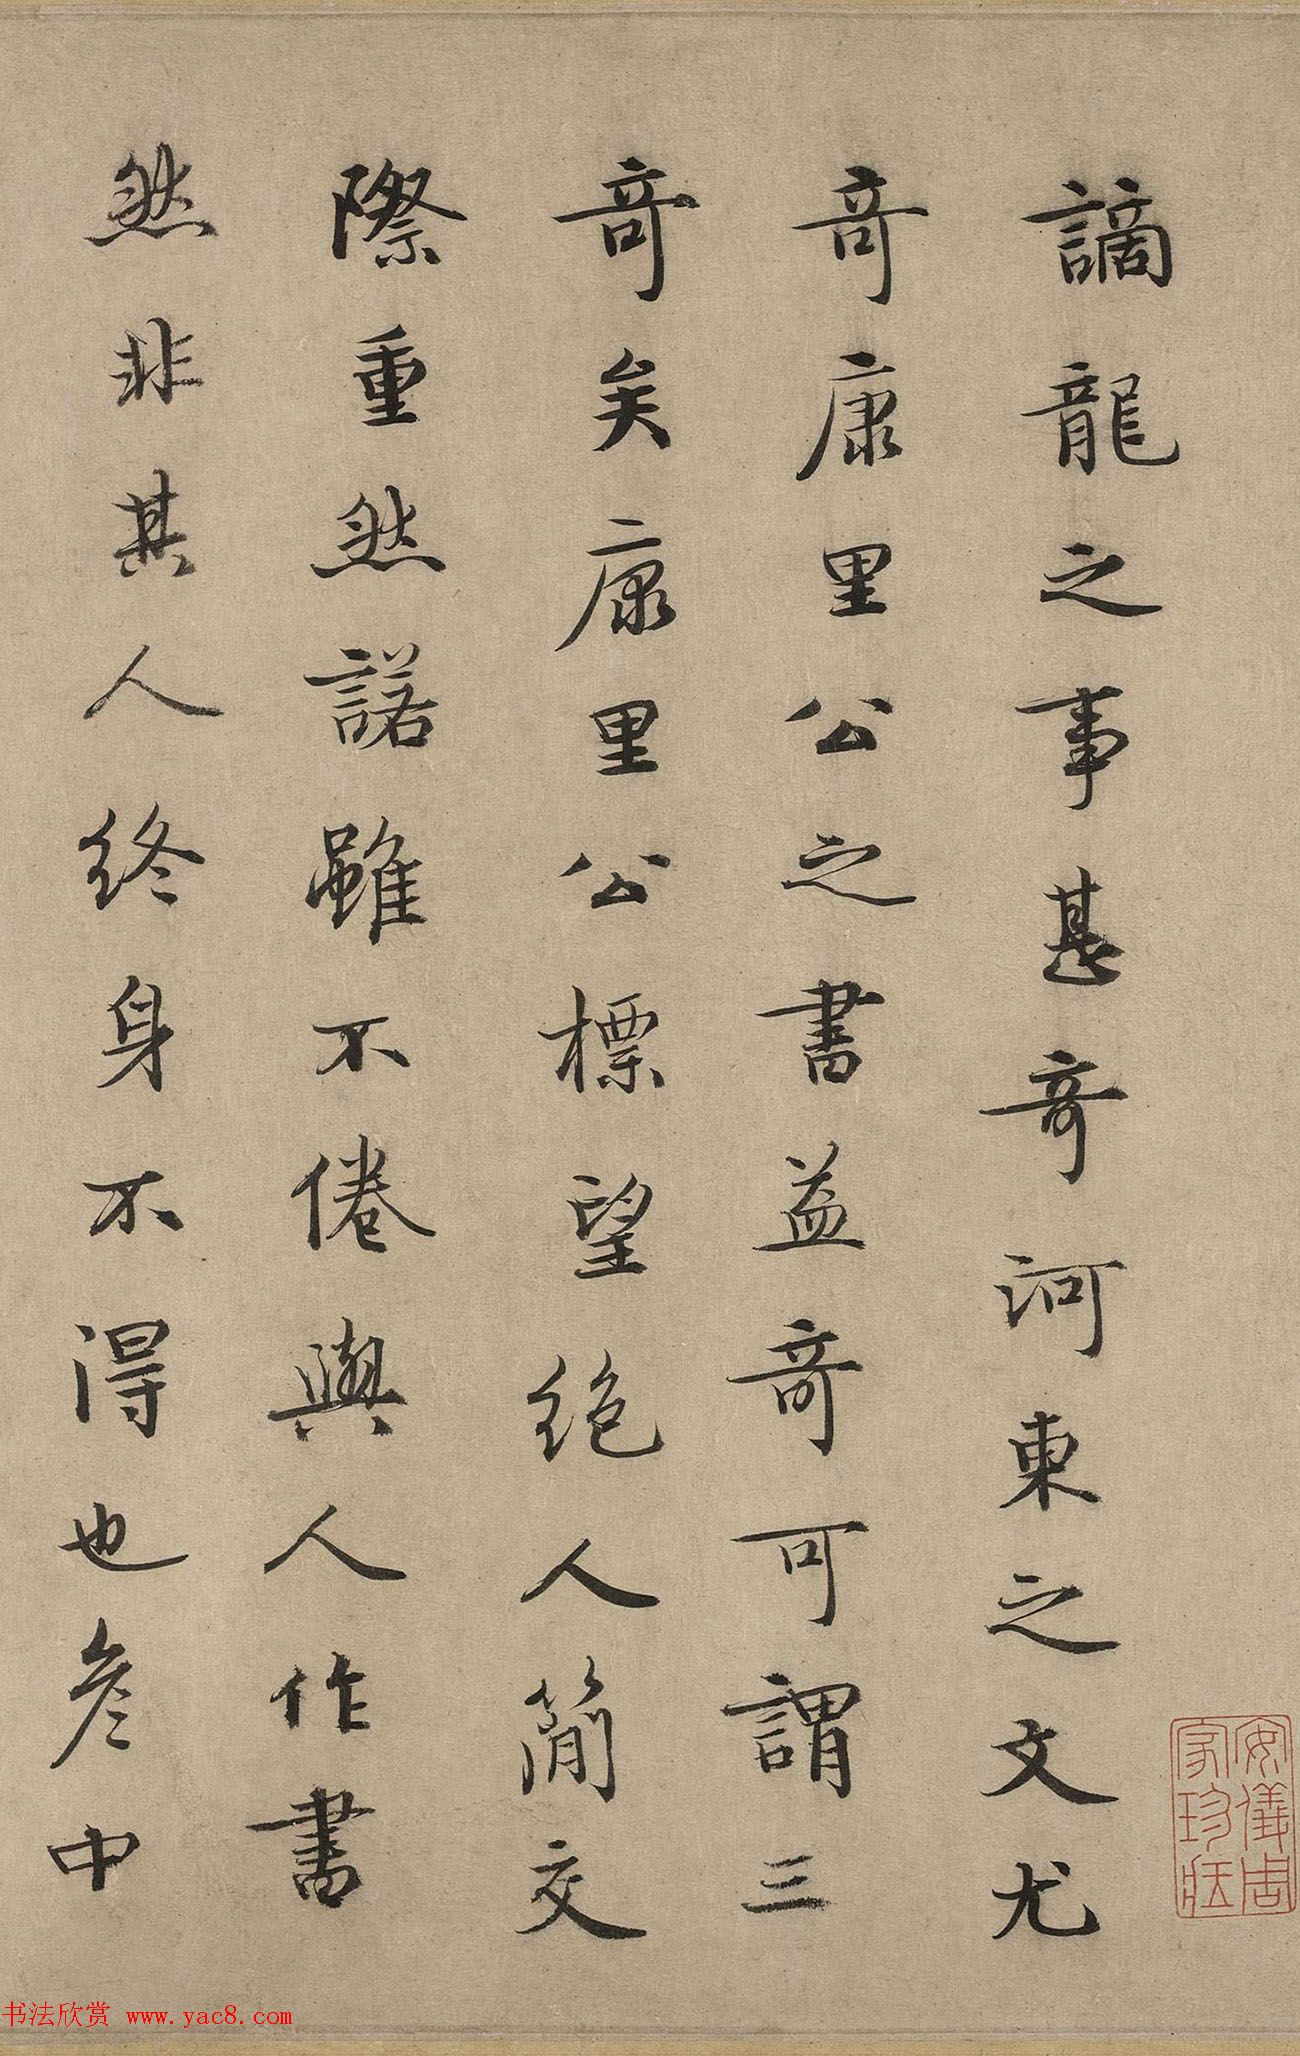 謫龍之事甚奇河東之文尤
奇康里公之書益奇可謂三
奇矣康里公標望絕人簡交
際重然諾雖不倦與人作書
然非其人終身不得也彦中
安儀周家珍藏
书法欣赏 www.yac8.com